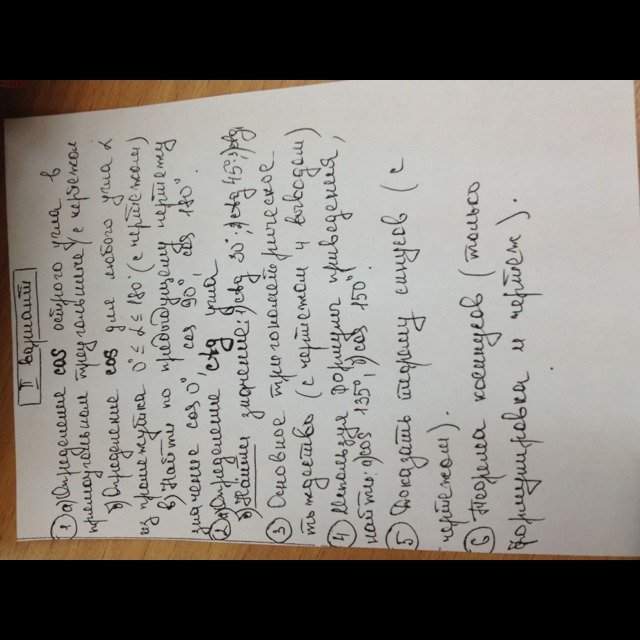 I вариант
① а) Определение cos острого угла в
прямоугольном треугольнике (с чертежом
б) Определение cos для любого угла α
из промежутка 0° ≤ α ≤ 180° (с чертежом)
в) Найти по предыдущему чертежу
значение cos 0°, cos 90°, cos 180°.
② а) Определение ctg угла
б) Найти значение: 1) ctg 30°; ctg 45°;
③ Основное тригонометрическое
тождество (с чертежом и выводом)
④ Используя формулы приведения,
найти: а) cos 135°, б) cos 150°.
⑤ Доказать теорему синусов (с
чертежом).
⑥ Теорема косинусов (только
формулировка и чертеж).